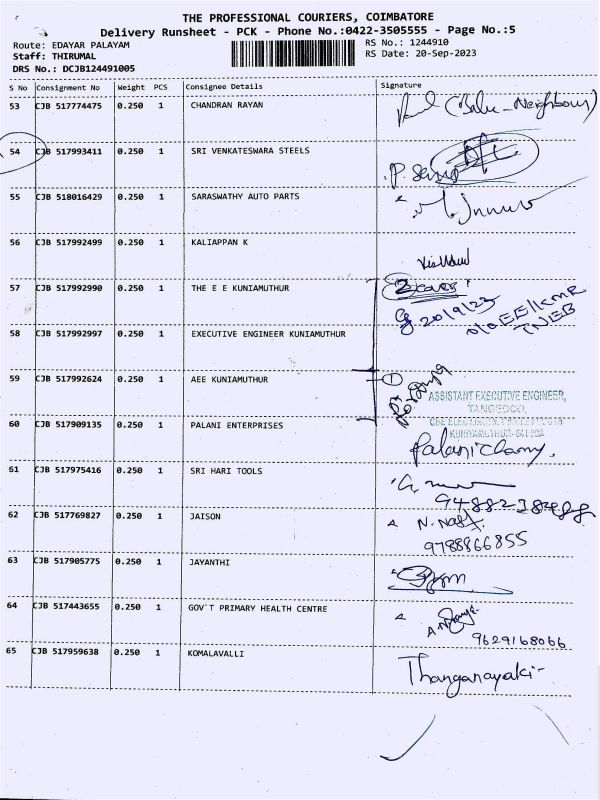 THE PROFESSIONAL COURIERS, COIMBATORE
Delivery Runsheet - PCK - Phone No.:0422-3505555 - Page No.:5
Route: EDAYAR PALAYAM
RS No.: 1244910
Staff: THIRUMAL
RS Date: 20-Sep-2023
DRS No.: DCJB124491005
S No Consignment No Weight PCS Consignee Details Signature
53 CJB 517774475 0.250 1 CHANDRAN RAYAN
(Babu-Neighbour)
54 CJB 517993411 0.250 1 SRI VENKATESWARA STEELS
55 CJB 518016429 0.250 1 SARASWATHY AUTO PARTS
56 CJB 517992499 0.250 1 KALIAPPAN K
57 CJB 517992990 0.250 1 THE E E KUNIAMUTHUR
20/9/23
O/o EE/KMR
TNEB
58 CJB 517992997 0.250 1 EXECUTIVE ENGINEER KUNIAMUTHUR
59 CJB 517992624 0.250 1 AEE KUNIAMUTHUR
①
ASSISTANT EXECUTIVE ENGINEER,
TANGEDCO,
60 CJB 517909135 0.250 1 PALANI ENTERPRISES
Palanichamy.
61 CJB 517975416 0.250 1 SRI HARI TOOLS
62 CJB 517769827 0.250 1 JAISON
9788866855
63 CJB 517905775 0.250 1 JAYANTHI
64 CJB 517443655 0.250 1 GOV`T PRIMARY HEALTH CENTRE
9629168066
65 CJB 517959638 0.250 1 KOMALAVALLI
Thanganayaki-